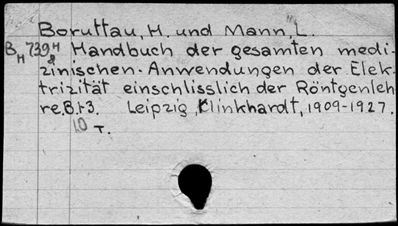 Boruttau, H. und Mann, L.
BH 739 H & Handbuch der gesamten medi-
zinischen-Anwendungen der Elek-
trizität einschlisslich der Röntgenleh
re. B. 1-3. Leipzig, Klinkhardt, 1909-1927.
10 T.